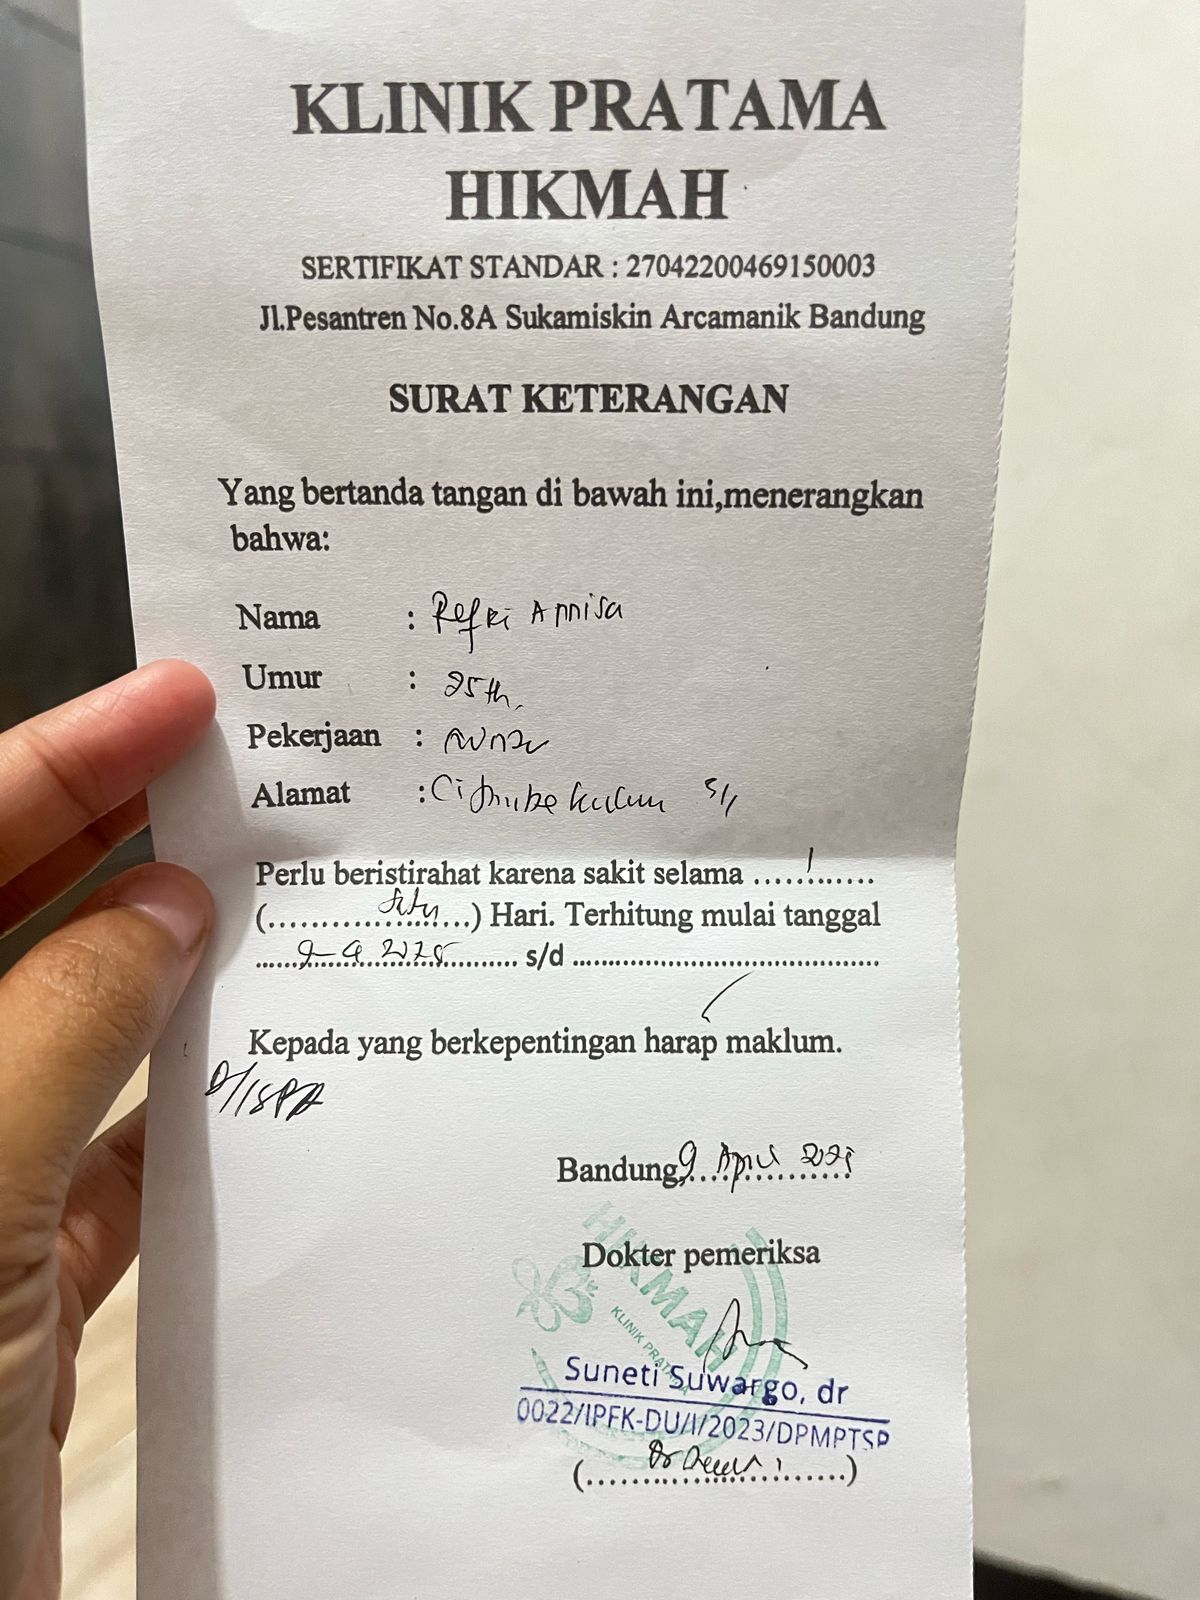 KLINIK PRATAMA
HIKMAH
SERTIFIKAT STANDAR : 27042200469150003
Jl.Pesantren No.8A Sukamiskin Arcamanik Bandung
SURAT KETERANGAN
Yang bertanda tangan di bawah ini,menerangkan
bahwa:
Nama : Refki Annisa
Umur : 25th.
Pekerjaan :
Alamat :
Perlu beristirahat karena sakit selama .....1.......
(............Satu......) Hari. Terhitung mulai tanggal
......9-4 2025........... s/d ..........................................
Kepada yang berkepentingan harap maklum.
D/ISPA
Bandung, 9 April 2025
Dokter pemeriksa
HIKMAH
KLINIK PRATAMA
Suneti Suwargo, dr
0022/IPFK-DU/I/2023/DPMPTSP